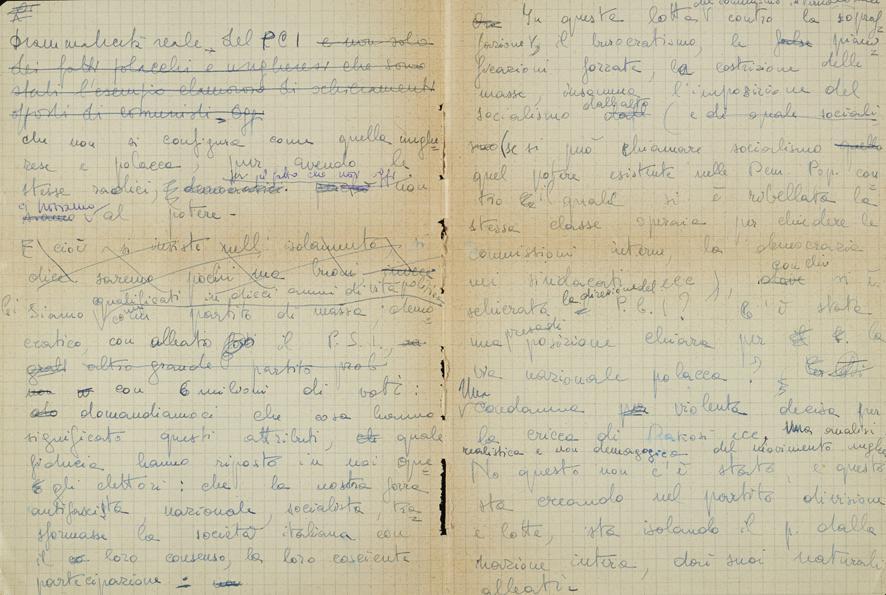 Drammaticità reale del PCI e non solo
dei fatti polacchi e ungheresi che sono
stati l'esempio clamoroso di schieramenti
opposti di comunisti. Oggi
che non si configura come quella unghe=
rese e polacca, pur avendo le
stesse radici, per il fatto che non
non
al potere -
E cioè si insiste nell'isolamento, si
dice saremo pochi ma buoni
qualificati in dieci anni di vita politica
Siamo come partito di massa, demo=
cratico, con alleato il P.S.I.,
altro grande partito
con 6 milioni di voti:
domandiamoci che cosa hanno
significato questi attributi, quale
fiducia hanno riposto in noi
gli elettori: che la nostra forza
antifascista nazionale, socialista, tra=
sformasse la società italiana con
il loro consenso, la loro cosciente
partecipazione
In questa lotta contro la sopraf=
fazione, il burocratismo, le piani=
ficazioni forzate, la costrizione delle
masse, insomma l'imposizione del
socialismo dall'alto (e di quale sociali
smo (se si può chiamare socialismo quello
quel potere esistente nelle Dem. Pop. con=
tro il quale si è ribellata la
stessa classe operaia per chiedere le
commissioni interne, la democrazia
nei sindacati ecc), con chi si è
schierata la direzione del P.C.(?) C'è stata
una presa di posizione chiara per la
via nazionale polacca?
Una
condanna violenta decisa per
la cricca di Rakosi ecc, una analisi
realistica e non demagogica del movimento unghe
No questo non c'è stato e questo
sta creando nel partito divisione
e lotte, sta isolando il p. dalla
nazione intera, dai suoi naturali
alleati -